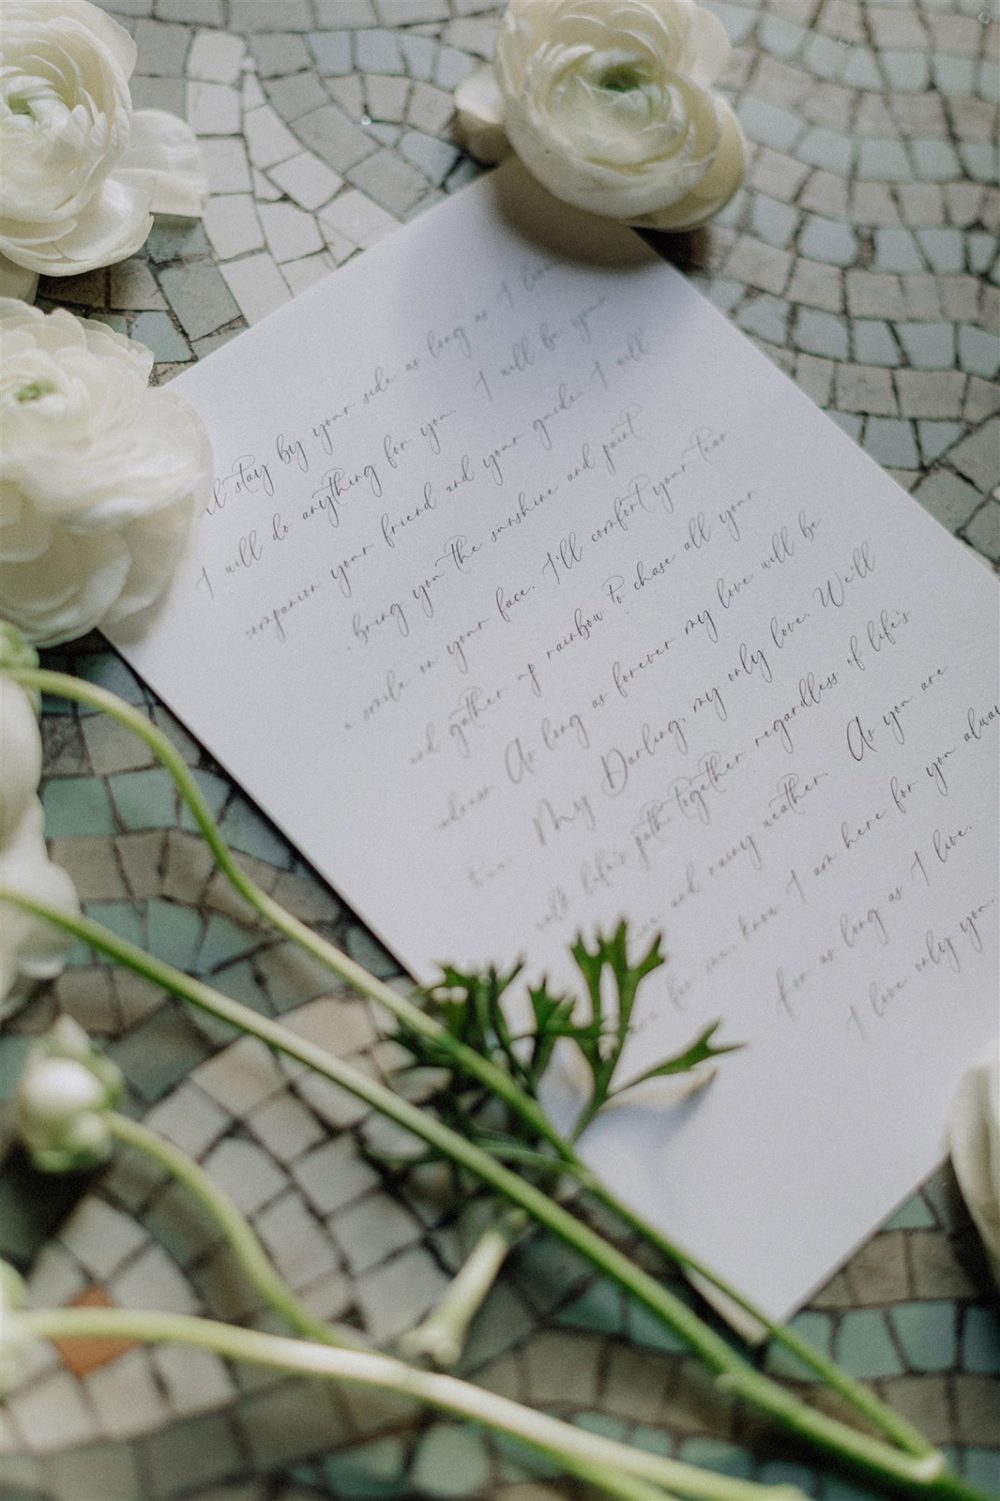 stay by your side as long as I
I will do anything for you. I will be your
companion your friend and your guide. I will
bring you the sunshine and paint
a smile on your face. I'll comfort your tear
and gather up rainbow to chase all your
As long as forever my love will be
true. My Darling, my only love. We'll
walk life's path together regardless of life's
and rainy weather. As you are
for me, know I am here for you always
for as long as I live.
I love only you.